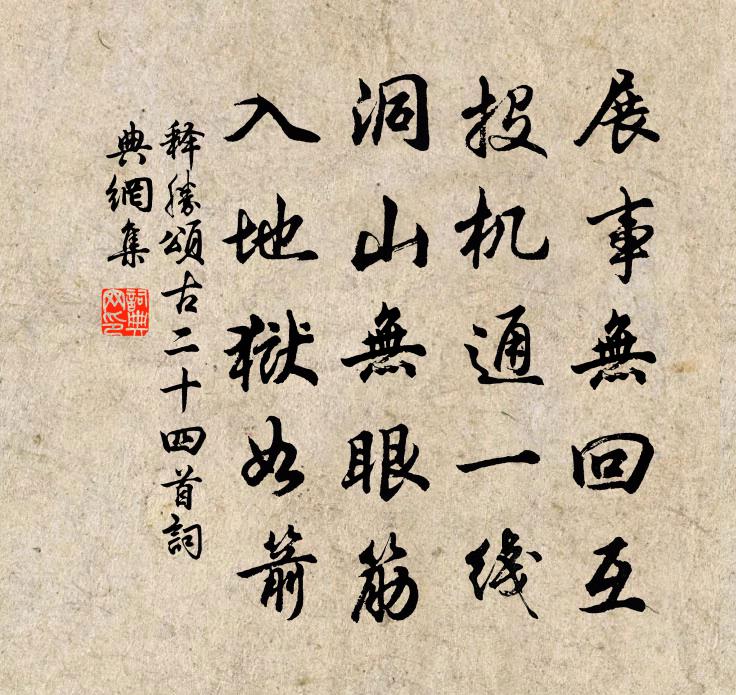 展事無回互
投机通一线
洞山無眼筋
入地獄如箭
释胜頌古二十四首詞
典網集
詞典网印